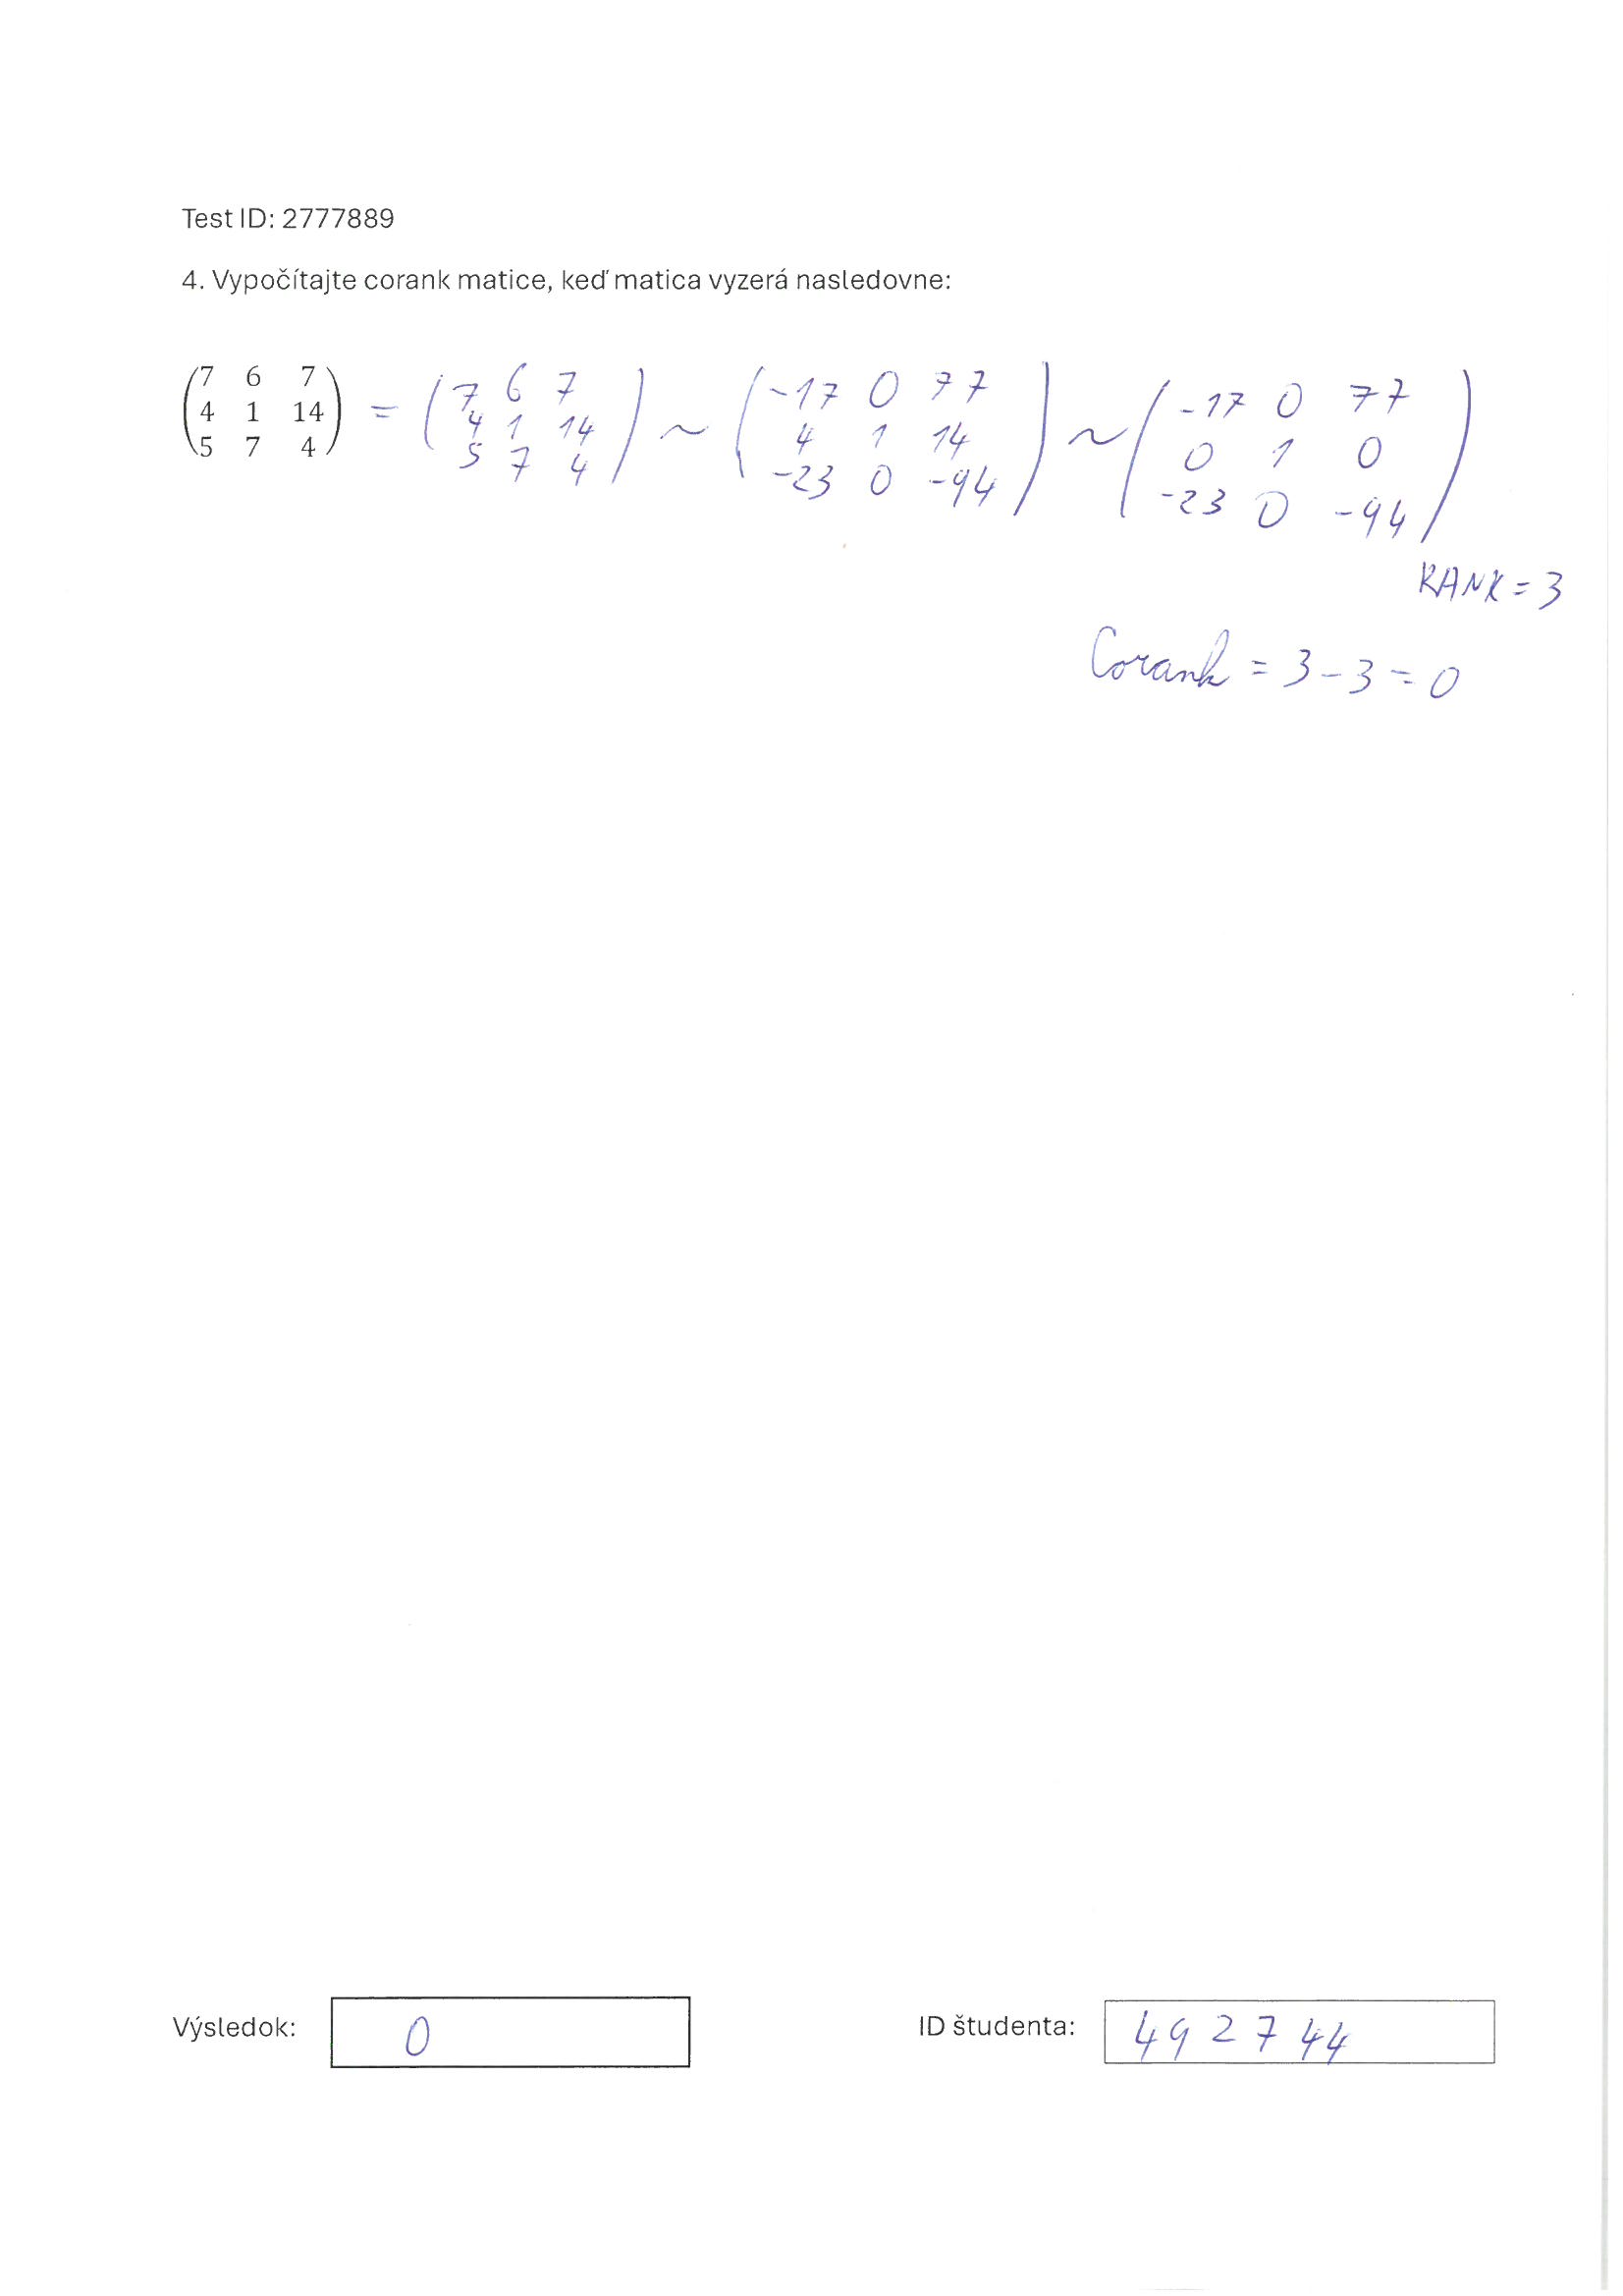 Test ID: 2777889
4. Vypočítajte corank matice, keď matica vyzerá nasledovne:
7 6 7 = ( 7 6 7 ) ~ ( -17 0 77 ) ~ ( -17 0 77 )
4 1 14 4 1 14 4 1 14 0 1 0
5 7 4 5 7 4 -23 0 -94 -23 0 -94
RANK = 3
Corank = 3 - 3 = 0
Výsledok: 0 ID študenta: 492744